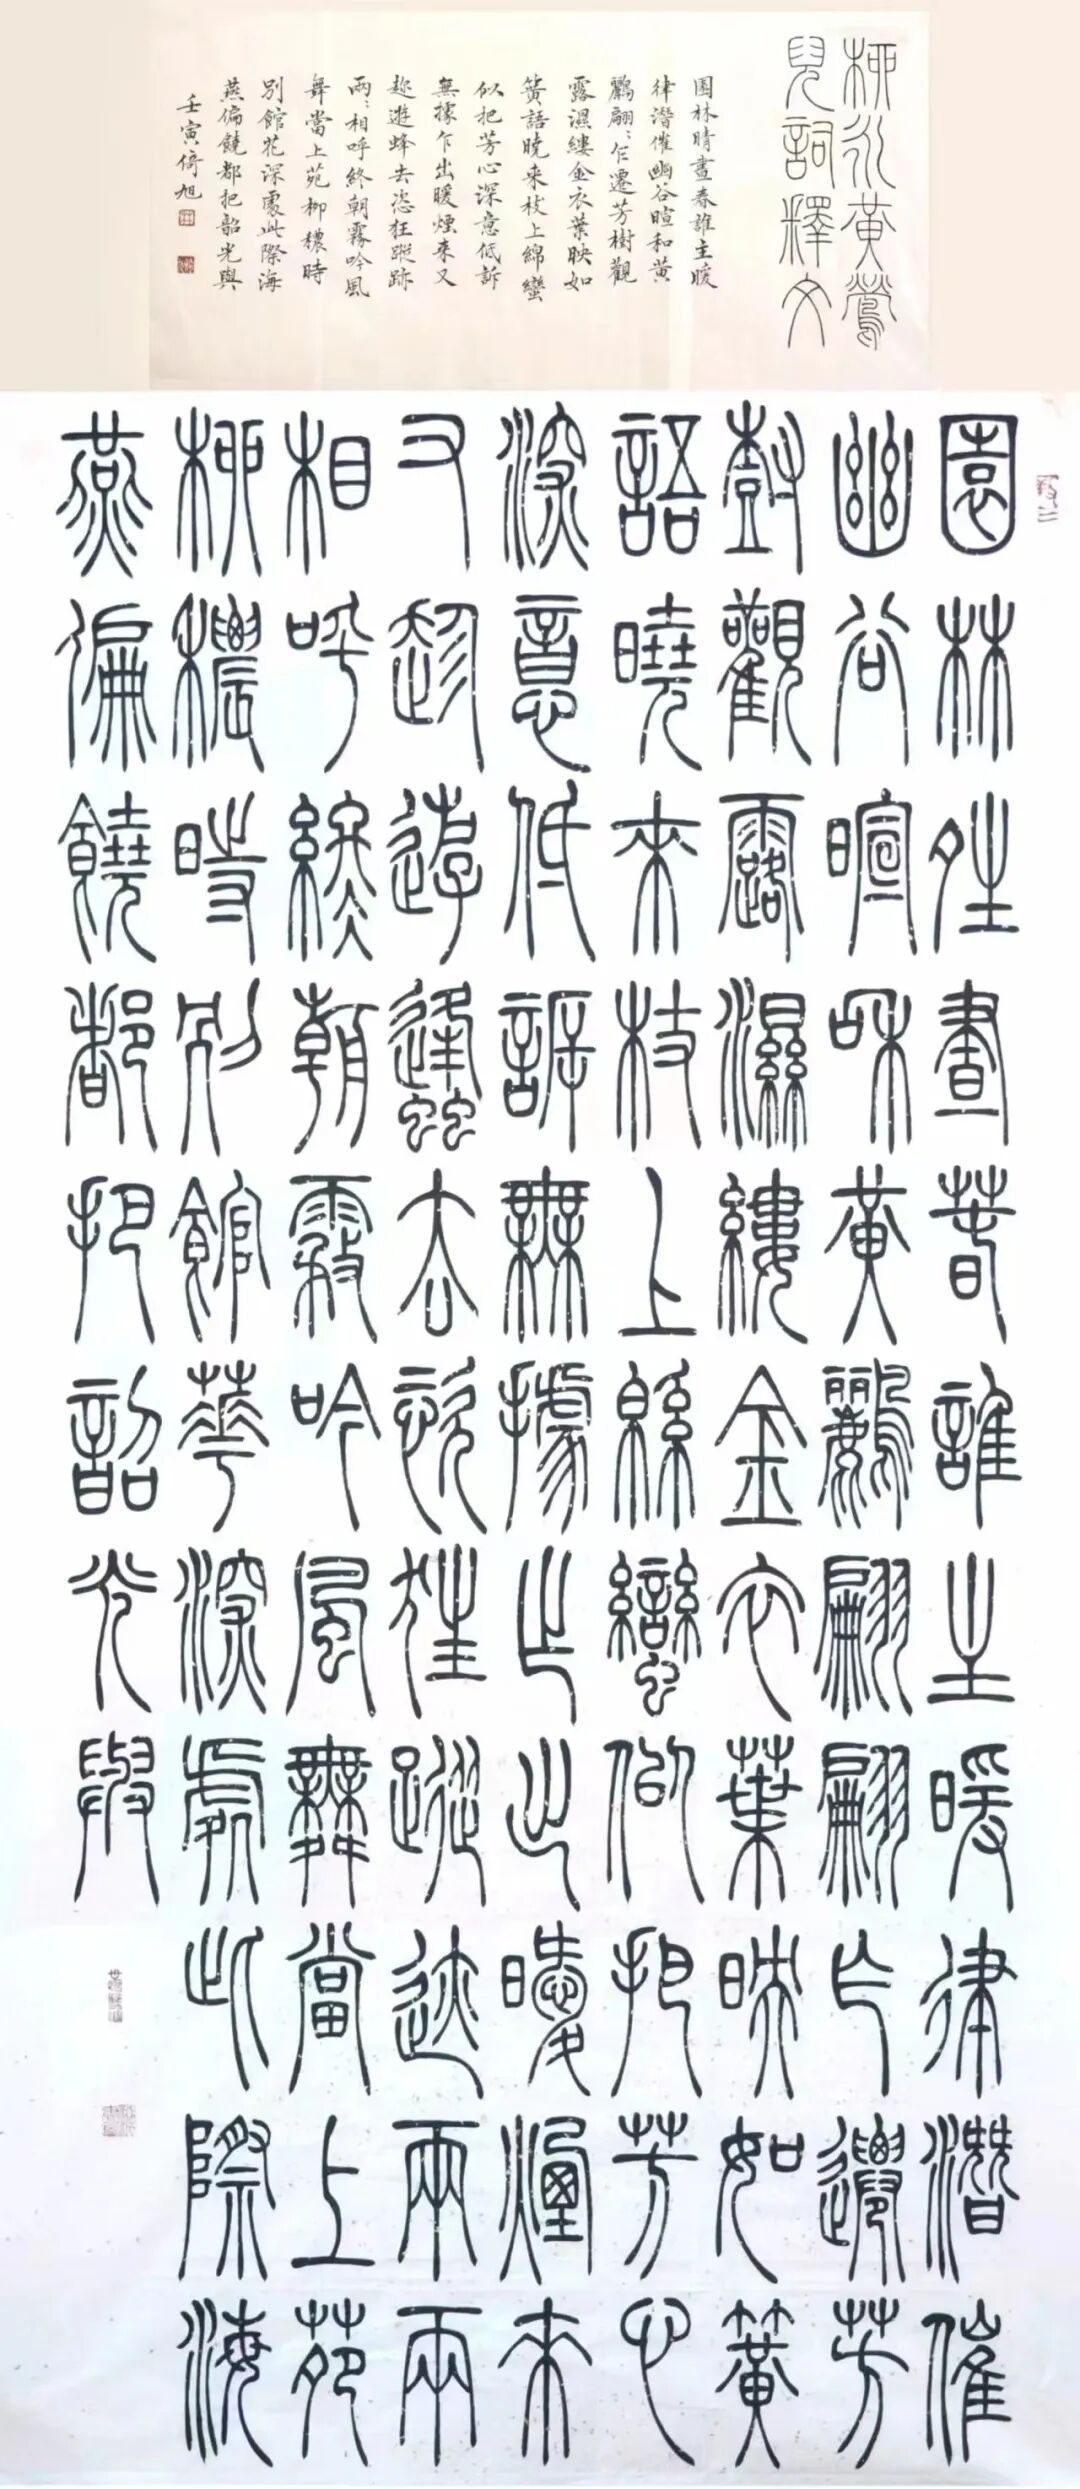 柳永黃鶯
兒詞釋文
園林晴晝春誰主暖
律潛催幽谷暄和黃
鸝翩〻乍遷芳樹觀
露濕縷金衣葉映如
簧語曉來枝上綿蠻
似把芳心深意低訴
無據乍出暖煙來又
趂遊蜂去恣狂蹤跡
兩〻相呼終朝霧吟風
舞當上苑柳穠時
別館花深處此際海
燕偏饒都把韶光與
壬寅倚旭
園林夝晝春誰主暖律潛催
幽谷暄和黃鸝翩翩乍遷芳
樹觀露濕縷金衣葉映如簧
語曉來枝上緜蠻似把芳心
深意低訴無據乍出暖煙來
又趂遊蜂去恣狂蹤迹兩兩
相呼終朝霧吟風舞當上苑
柳穠時別館華深處此際海
燕偏饒都把韶光與